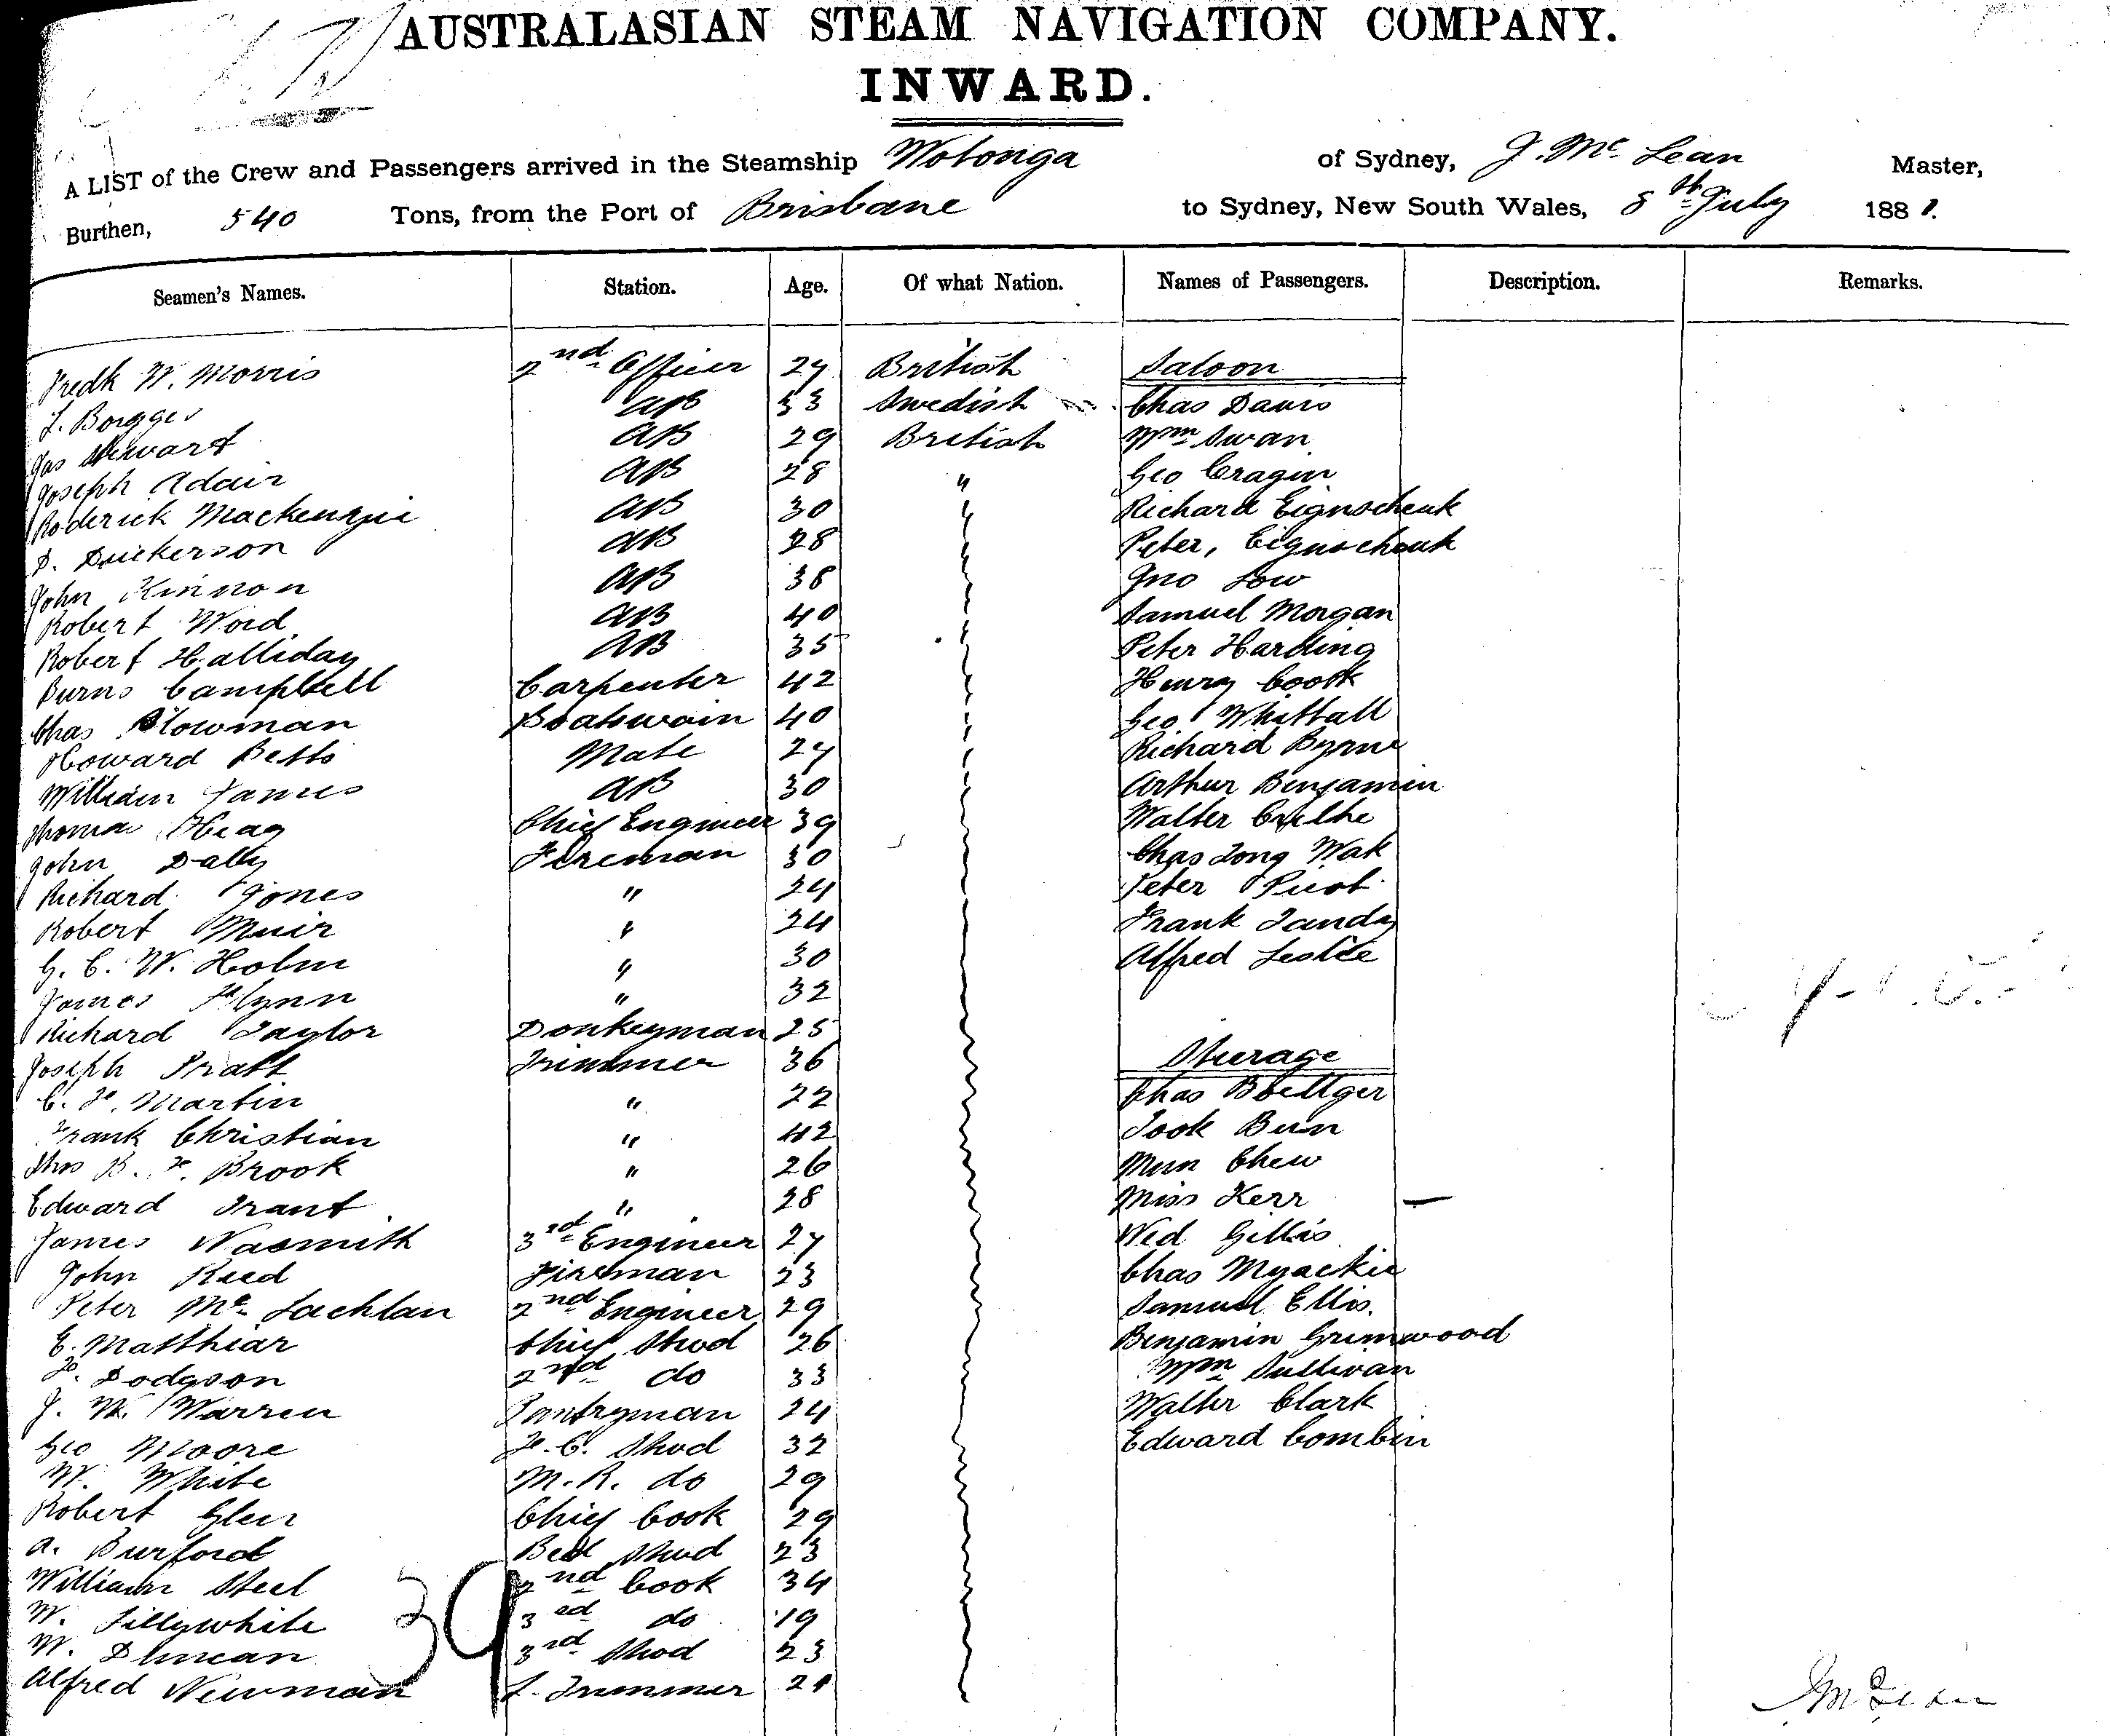 AUSTRALASIAN STEAM NAVIGATION COMPANY.
INWARD.
A LIST of the Crew and Passengers arrived in the Steamship Wotonga of Sydney, J. Mc. Lean Master,
Burthen, 540 Tons, from the Port of Brisbane to Sydney, New South Wales, 8th July 1881.
Seamen's Names. Station. Age. Of what Nation. Names of Passengers. Description. Remarks.
Fredk W. Morris 2nd Officer 27 British Saloon
J. Borgges AB 33 Swedish Chas Davis
Jas Stewart AB 29 British Wm Swan
Joseph Adair AB 28 " Geo Cragin
Roderick Mackenzie AB 30 Richard Eignschenk
D. Dickerson AB 28 Peter, Eignschenk
John Kinnon AB 38 Jno Low
Robert Woid AB 40 Samuel Morgan
Robert Halliday AB 35 Peter Harding
Burns Campbell Carpenter 42 Henry Cook
Chas Plowman Boatswain 40 Geo Whittall
Howard Betts Mate 27 Richard Byrne
William James AB 30 Arthur Benjamin
Thomas Chief Engineer 39 Walter
John Dally Fireman 30 Chas Long Wak
Richard Jones " 24 Peter
Robert Muir " 24 Frank Tandy
G. C. W. Holm " 30 Alfred Leslie
James Flynn " 32
Richard Taylor Donkeyman 25
Joseph Pratt Trimmer 36 Steerage
C. F. Martin " 22 Chas Boettger
Frank Christian " 42 Took Bun
Thos B. F. Brook " 26 Mun Chew
Edward Trant " 28 Miss Kerr —
James Nasmith 3rd Engineer 27 Wed Gillis
John Reed Fireman 23 Chas Myackie
Peter Mc Lachlan 2nd Engineer 29 Samuel Ellis.
E. Matthiar Chief Stwd 26 Benjamin Grimwood
F. Dodgson 2nd do 33 Wm Sullivan
J. W. Warren Pantryman 24 Walter Clark
Geo Moore F. C. Stwd 32 Edward Combin
W. White M. R. do 29
Robert Glen Chief Cook 29
A. Burford Bed Stwd 23
William Steel 2nd Cook 34
W. Lillywhite 3rd do 19
W. Duncan 3rd Stwd 23
Alfred Newman Trimmer 21
39
J McLean